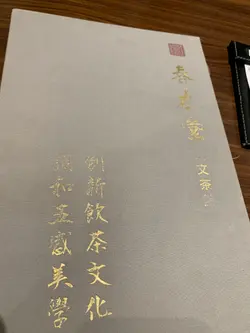 春水堂
文茶
創新飲茶文化
和五感美學